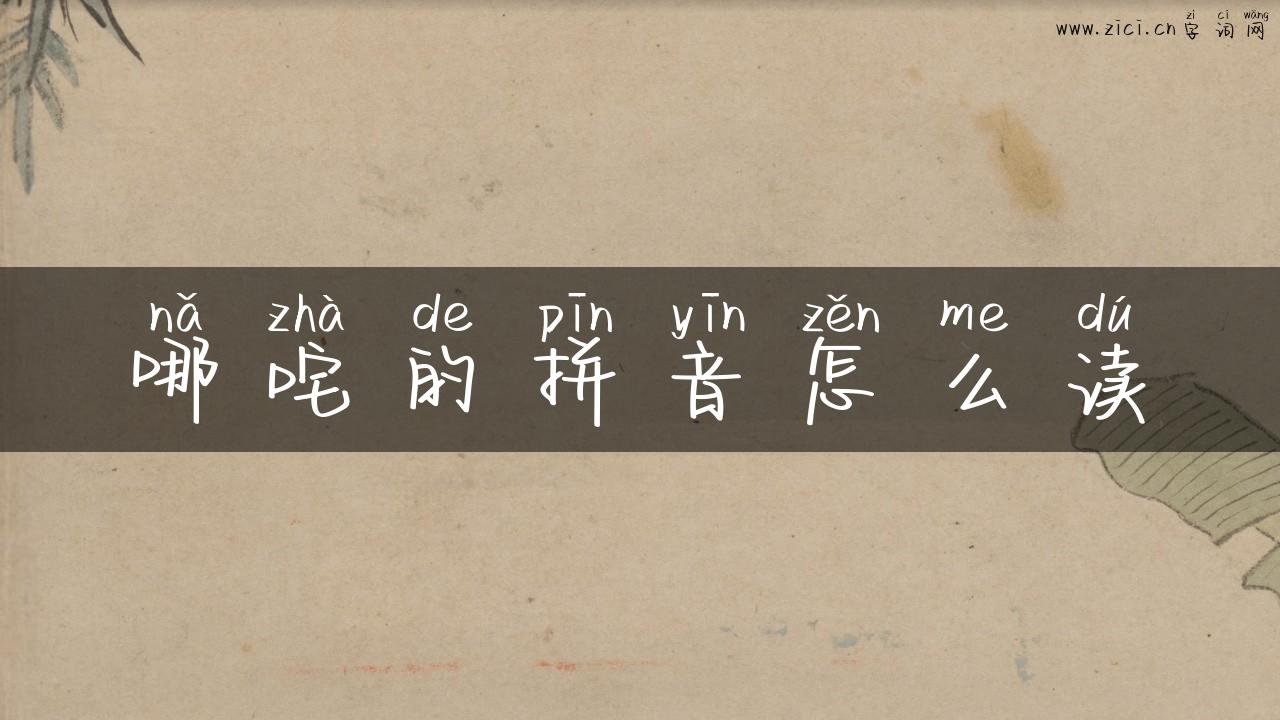 zì cí wǎng
www.zici.cn 字词网
nǎ zhà de pīn yīn zěn me dú
哪咤的拼音怎么读